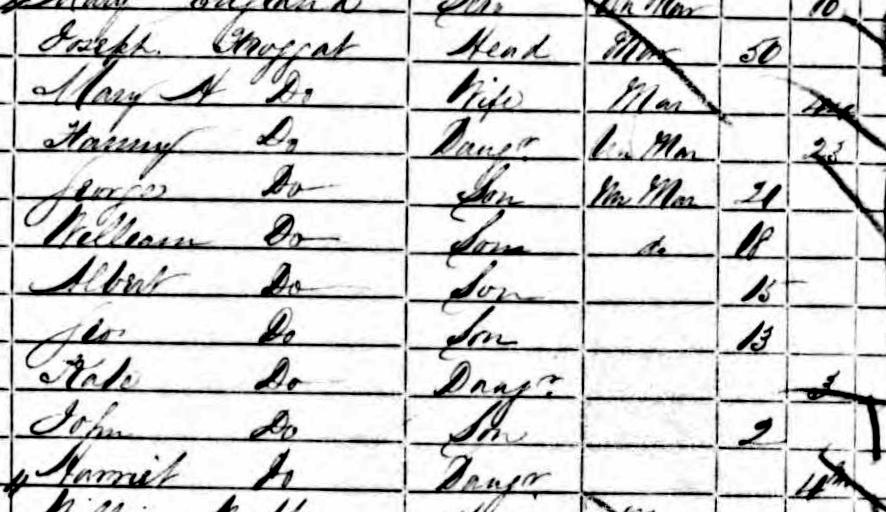 Mary England Serv Un Mar 16
Joseph Froggat Head Mar 50
Mary A Do Wife Mar
Fanny Do Daugr Un Mar 23
George Do Son Un Mar 21
William Do Son do 18
Albert Do Son 15
Do Son 13
Kate Do Daugr 3
John Do Son 2
Harriet Do Daugr